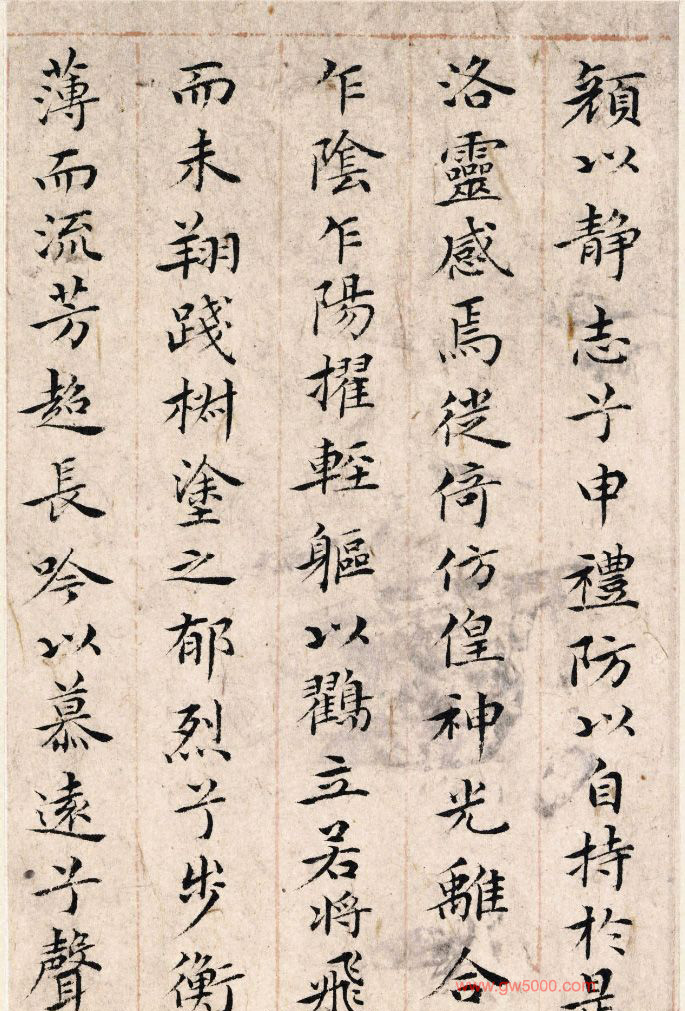 顔以静志兮申禮防以自持於是
洛靈感焉徙倚仿偟神光離合
乍陰乍陽擢輕軀以鸖立若将飛
而未翔踐椒塗之郁烈兮步衡
薄而流芳超長吟以慕遠兮聲
www.gw5000.com